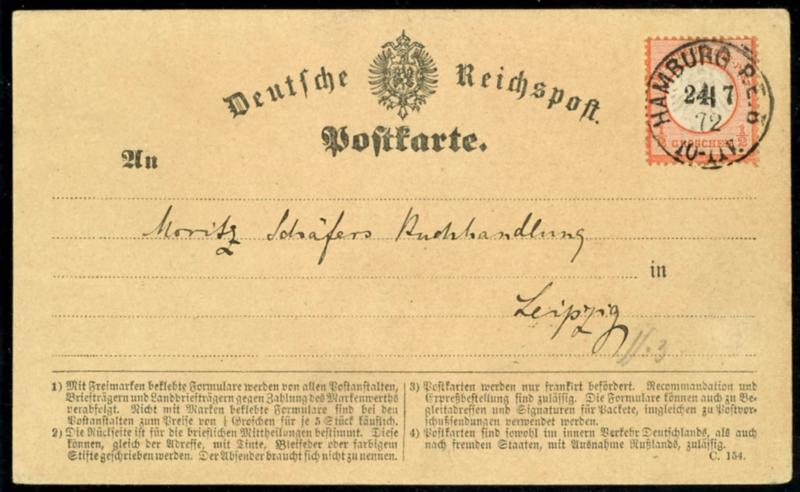 Deutsche Reichspost.
Postkarte.
HAMBURG P.E. 6
24 7
72
10-11V.
1/2 GROSCHEN 1/2
An
Moritz Schäfers Buchhandlung
in
Leipzig
1) Mit Freimarken beklebte Formulare werden von allen Postanstalten,
Briefträgern und Landbriefträgern gegen Zahlung des Markenwerths
verabfolgt. Nicht mit Marken beklebte Formulare sind bei den
Postanstalten zum Preise von ½ Groschen für je 5 Stück käuflich.
2) Die Rückseite ist für die brieflichen Mittheilungen bestimmt. Diese
können, gleich der Adresse, mit Tinte, Bleifeder oder farbigem
Stifte geschrieben werden. Der Absender braucht sich nicht zu nennen.
3) Postkarten werden nur frankirt befördert. Recommandation und
Expreßbestellung sind zulässig. Die Formulare können auch zu Be-
gleitadressen und Signaturen für Packete, imgleichen zu Postvor-
schußsendungen verwendet werden.
4) Postkarten sind sowohl im innern Verkehr Deutschlands, als auch
nach fremden Staaten, mit Ausnahme Rußlands, zulässig.
C. 154.